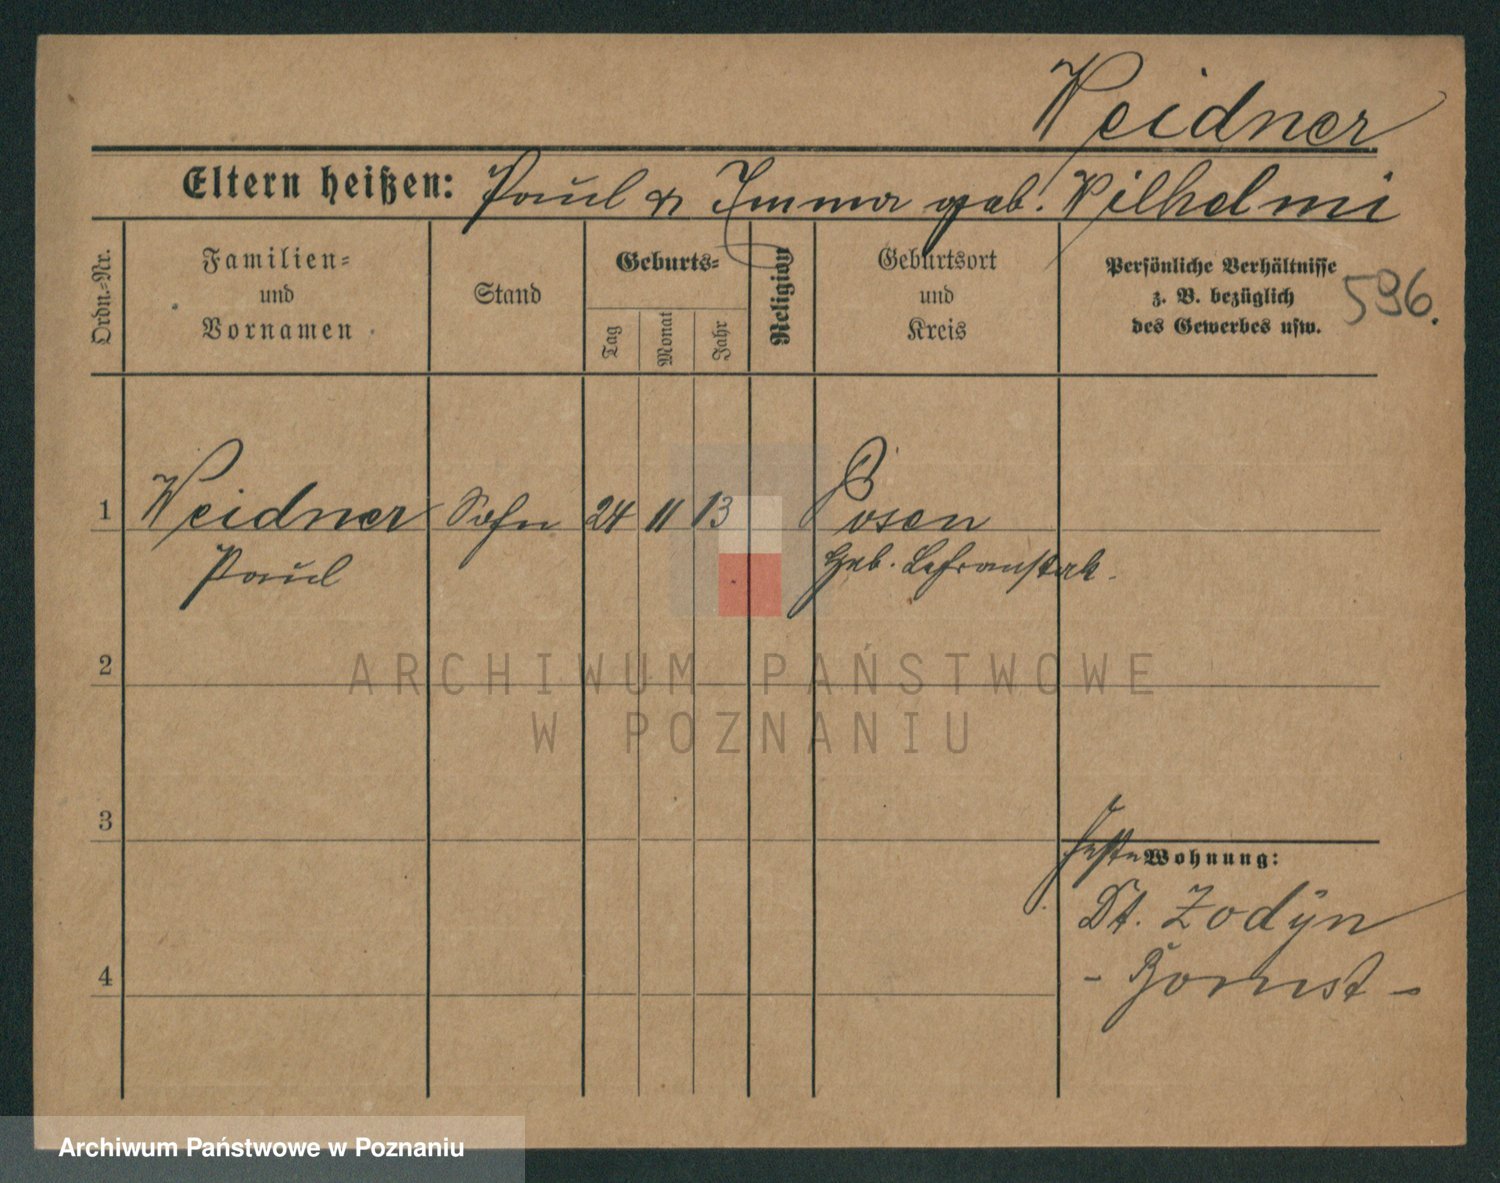 Weidner
Eltern heißen: Paul u Imma geb. Wilhelmi
Ordn.-Nr.
Familien-
und
Vornamen
Stand
Geburts-
Tag
Monat
Jahr
Religion
Geburtsort
und
Kreis
Persönliche Verhältnisse
z. B. bezüglich
des Gewerbes usw.
596.
1 Weidner Sohn 24 11 13 Posen
Paul Heb. Lehranstalt.
2
ARCHIWUM PAŃSTWOWE
W POZNANIU
3
Wohnung:
Dt. Zodyn
4 - Bomst -
Archiwum Państwowe w Poznaniu